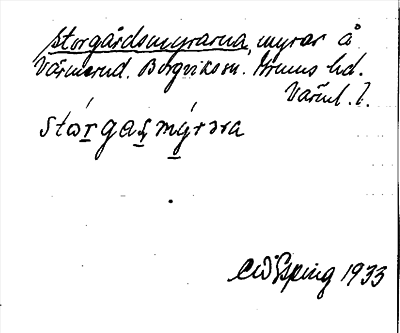 Storgårdsmyrarna, myrar å
Värmerud. Borgviks sn. Grums hd.
Värml. l.
stɷ́rgaʂmýrəra
CW Esping 1933